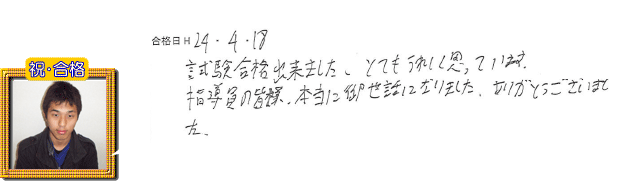 祝・合格
合格日 H 24・4・18
試験合格出来ました、とてもうれしく思っています。
指導員の皆様、本当に御世話になりました、ありがとうございまし
た。